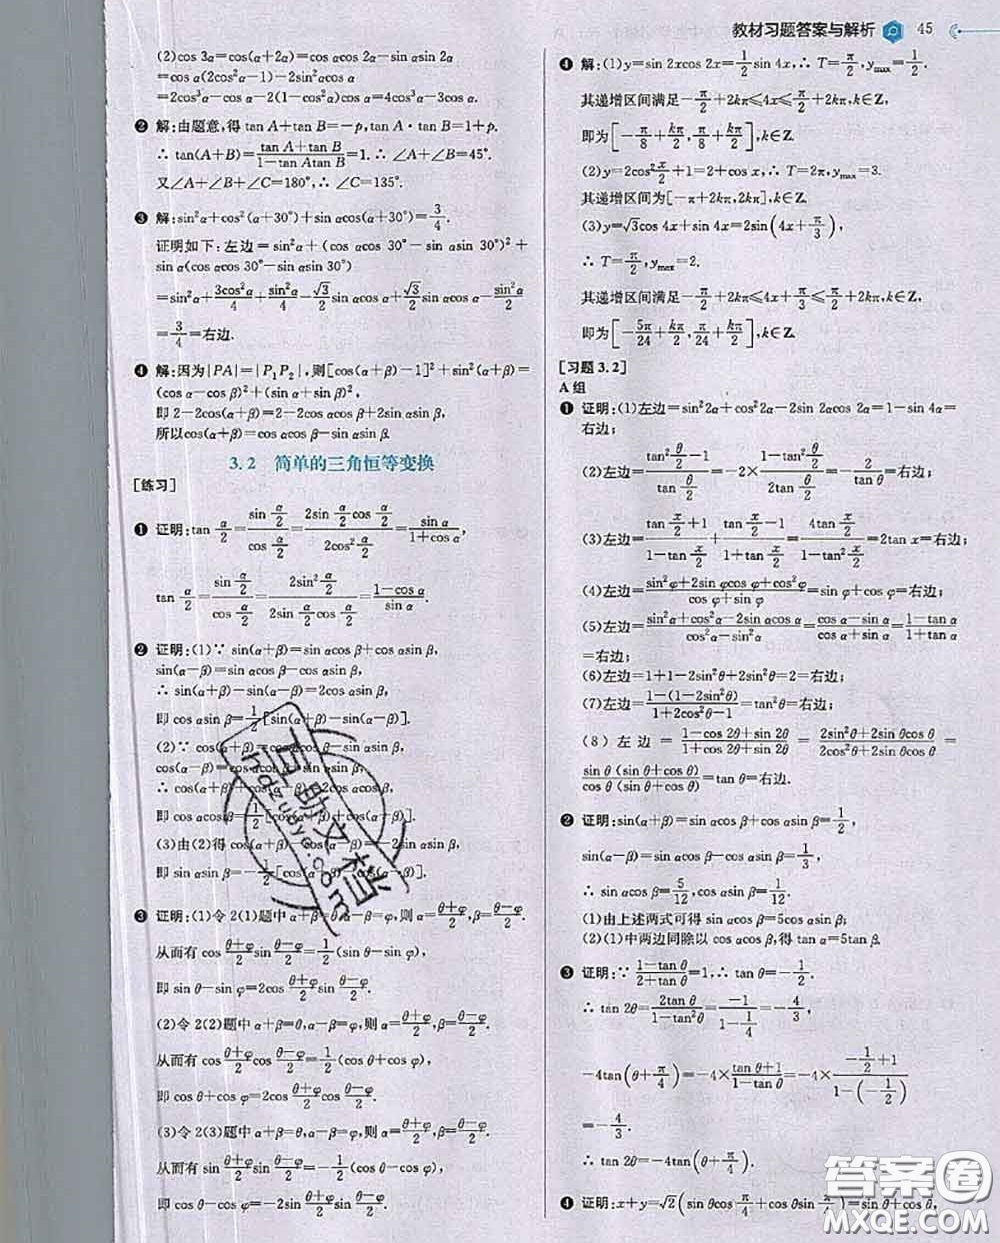 教材习题答案与解析 45
(2)cos 3α=cos(2α+α)=cos 2αcos α-sin αsin 2α
=cos α(2cos²α-1)-2sin²αcos α
=2cos³α-cos α-2(1-cos²α)cos α=4cos³α-3cos α.
❷ 解:由题意,得 tan A+tan B=-p,tan A·tan B=1+p.
∴ tan(A+B)=(tan A+tan B)/(1-tan Atan B)=1.∴ ∠A+∠B=45°.
又∠A+∠B+∠C=180°,∴ ∠C=135°.
❸ 解:sin²α+cos²(α+30°)+sin αcos(α+30°)=3/4.
证明如下:左边=sin²α+(cos αcos 30°-sin αsin 30°)²+
sin α(cos αcos 30°-sin αsin 30°)
=sin²α+3cos²α/4+sin²α/4-√3/2 sin αcos α+√3/2 sin αcos α-sin²α/2
=3/4=右边.
❹ 解:因为|PA|=|P₁P₂|,则[cos(α+β)-1]²+sin²(α+β)=
(cos α-cos β)²+(sin α+sin β)²,
即 2-2cos(α+β)=2-2cos αcos β+2sin αsin β,
所以cos(α+β)=cos αcos β-sin αsin β.
3.2 简单的三角恒等变换
[练习]
❶ 证明:tan α/2=(sin α/2)/(cos α/2)=(2sin α/2 cos α/2)/(2cos² α/2)=sin α/(1+cos α),
tan α/2=(sin α/2)/(cos α/2)=(2sin² α/2)/(2sin α/2 cos α/2)=(1-cos α)/sin α.
❷ 证明:(1)∵ sin(α+β)=sin αcos β+cos αsin β,
sin(α-β)=sin αcos β-cos αsin β,
∴ sin(α+β)-sin(α-β)=2cos αsin β,
即 cos αsin β=1/2[sin(α+β)-sin(α-β)].
(2)∵ cos(α+β)=cos αcos β-sin αsin β,
cos(α-β)=cos αcos β+sin αsin β,
∴ cos(α+β)+cos(α-β)=2cos αcos β,
即 cos αcos β=1/2[cos(α+β)+cos(α-β)].
(3)由(2)得 cos(α+β)-cos(α-β)=-2sin αsin β,
即 sin αsin β=-1/2[cos(α+β)-cos(α-β)].
❸ 证明:(1)令 2(1)题中 α+β=θ,α-β=φ,则 α=(θ+φ)/2,β=(θ-φ)/2.
从而有 cos (θ+φ)/2 sin (θ-φ)/2=1/2(sin θ-sin φ),
即 sin θ-sin φ=2cos (θ+φ)/2 sin (θ-φ)/2.
(2)令 2(2)题中 α+β=θ,α-β=φ,则 α=(θ+φ)/2,β=(θ-φ)/2.
从而有 cos (θ+φ)/2 cos (θ-φ)/2=1/2(cos θ+cos φ),
即 cos θ+cos φ=2cos (θ+φ)/2 cos (θ-φ)/2.
(3)令 2(3)题中 α+β=θ,α-β=φ,则 α=(θ+φ)/2,β=(θ-φ)/2.
从而有 sin (θ+φ)/2 sin (θ-φ)/2=-1/2(cos θ-cos φ),
即 cos θ-cos φ=-2sin (θ+φ)/2 sin (θ-φ)/2.
❹ 解:(1)y=sin 2xcos 2x=1/2 sin 4x,∴ T=π/2,y_max=1/2.
其递增区间满足-π/2+2kπ≤4x≤π/2+2kπ,k∈Z,
即为[-π/8+kπ/2,π/8+kπ/2],k∈Z.
(2)y=2cos² x/2+1=2+cos x,∴ T=2π,y_max=3.
其递增区间为[-π+2kπ,2kπ],k∈Z.
(3)y=√3cos 4x+sin 4x=2sin(4x+π/3),
∴ T=π/2,y_max=2.
其递增区间满足-π/2+2kπ≤4x+π/3≤π/2+2kπ,k∈Z,
即为[-5π/24+kπ/2,π/24+kπ/2],k∈Z.
[习题 3.2]
A 组
❶ 证明:(1)左边=sin²2α+cos²2α-2sin 2αcos 2α=1-sin 4α=
右边;
(2)左边=(tan² θ/2-1)/(tan θ/2)=-2×(1-tan² θ/2)/(2tan θ/2)=-2/tan θ=右边;
(3)左边=(tan x/2+1)/(1-tan x/2)+(tan x/2-1)/(1+tan x/2)=(4tan x/2)/(1-tan² x/2)=2tan x=右边;
(4)左边=(sin²φ+2sin φcos φ+cos²φ)/(cos φ+sin φ)=sin φ+cos φ=右边;
(5)左边=(sin²α+cos²α-2sin αcos α)/(cos²α-sin²α)=(cos α-sin α)/(cos α+sin α)=(1-tan α)/(1+tan α)
=右边;
(6)左边=1+1-2sin²θ+2sin²θ=2=右边;
(7)左边=(1-(1-2sin²θ))/(1+2cos²θ-1)=tan²θ=右边;
(8)左边=(1-cos 2θ+sin 2θ)/(1+cos 2θ+sin 2θ)=(2sin²θ+2sin θcos θ)/(2cos²θ+2sin θcos θ)=
sin θ(sin θ+cos θ)/cos θ(sin θ+cos θ)=tan θ=右边.
❷ 证明:sin(α+β)=sin αcos β+cos αsin β=1/2,
sin(α-β)=sin αcos β-cos αsin β=1/3,
∴ sin αcos β=5/12,cos αsin β=1/12.
(1)由上述两式可得 sin αcos β=5cos αsin β;
(2)(1)中两边同除以 cos αcos β,得 tan α=5tan β.
❸ 证明:∵ (1-tan θ)/(2+tan θ)=1,∴ tan θ=-1/2.
∴ tan 2θ=2tan θ/(1-tan²θ)=-1/(1-1/4)=-4/3,
-4tan(θ+π/4)=-4×(tan θ+1)/(1-tan θ)=-4×(-1/2+1)/(1-(-1/2))=
-4/3.
∴ tan 2θ=-4tan(θ+π/4).
❹ 证明:x+y=√2(sin θcos π/4+cos θsin π/4)=sin θ+cos θ,
答案圈
MXQE.COM